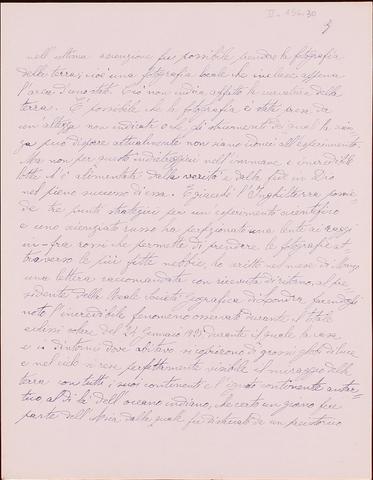 II - 156.30
3
nell'ultima ascensione fu possibile prendere la fotografia
della terra; cioè una fotografia locale che inclusi appena
l'area di uno stato. Ciò non indica affatto la curvatura della
terra. E' possibile che la fotografia è stata presa da
un'altezza non indicata o che gli strumenti dei quali la scien-
za può disporre attualmente non siano idonei all'esperimento.
Ma non per questo indietreggiare nell'immane e incredibile
lotta. Si è alimentati dalla verità e dalla fede in Dio
nel pieno successo di essa. E giacchè l'Inghilterra possie-
de tre punti strategici per un esperimento scientifico
e uno scienziato russo ha perfezionato una lente ai raggi
in-fra rossi che permette di prendere le fotografie at-
traverso le più fitte nebbie, ho scritto nel mese di Marzo
una lettera raccomandata con ricevuta di ritorno, al pre-
sidente della Reale Società Geografica di Londra, facendogli
noto l'incredibile fenomeno osservato durante il totale
eclissi solare del 24 Gennaio 1925, durante il quale la casa,
e i dintorni dove abitavo si coprirono di grossi globi di luce
e nel cielo si rese perfettamente visibile il miraggio della
terra con tutti i suoi continenti e l'ignoto continente antar-
tico al di là dell'oceano indiano, che certo un giorno fece
parte dell'Asia dalla quale fu distaccato da un preistorico